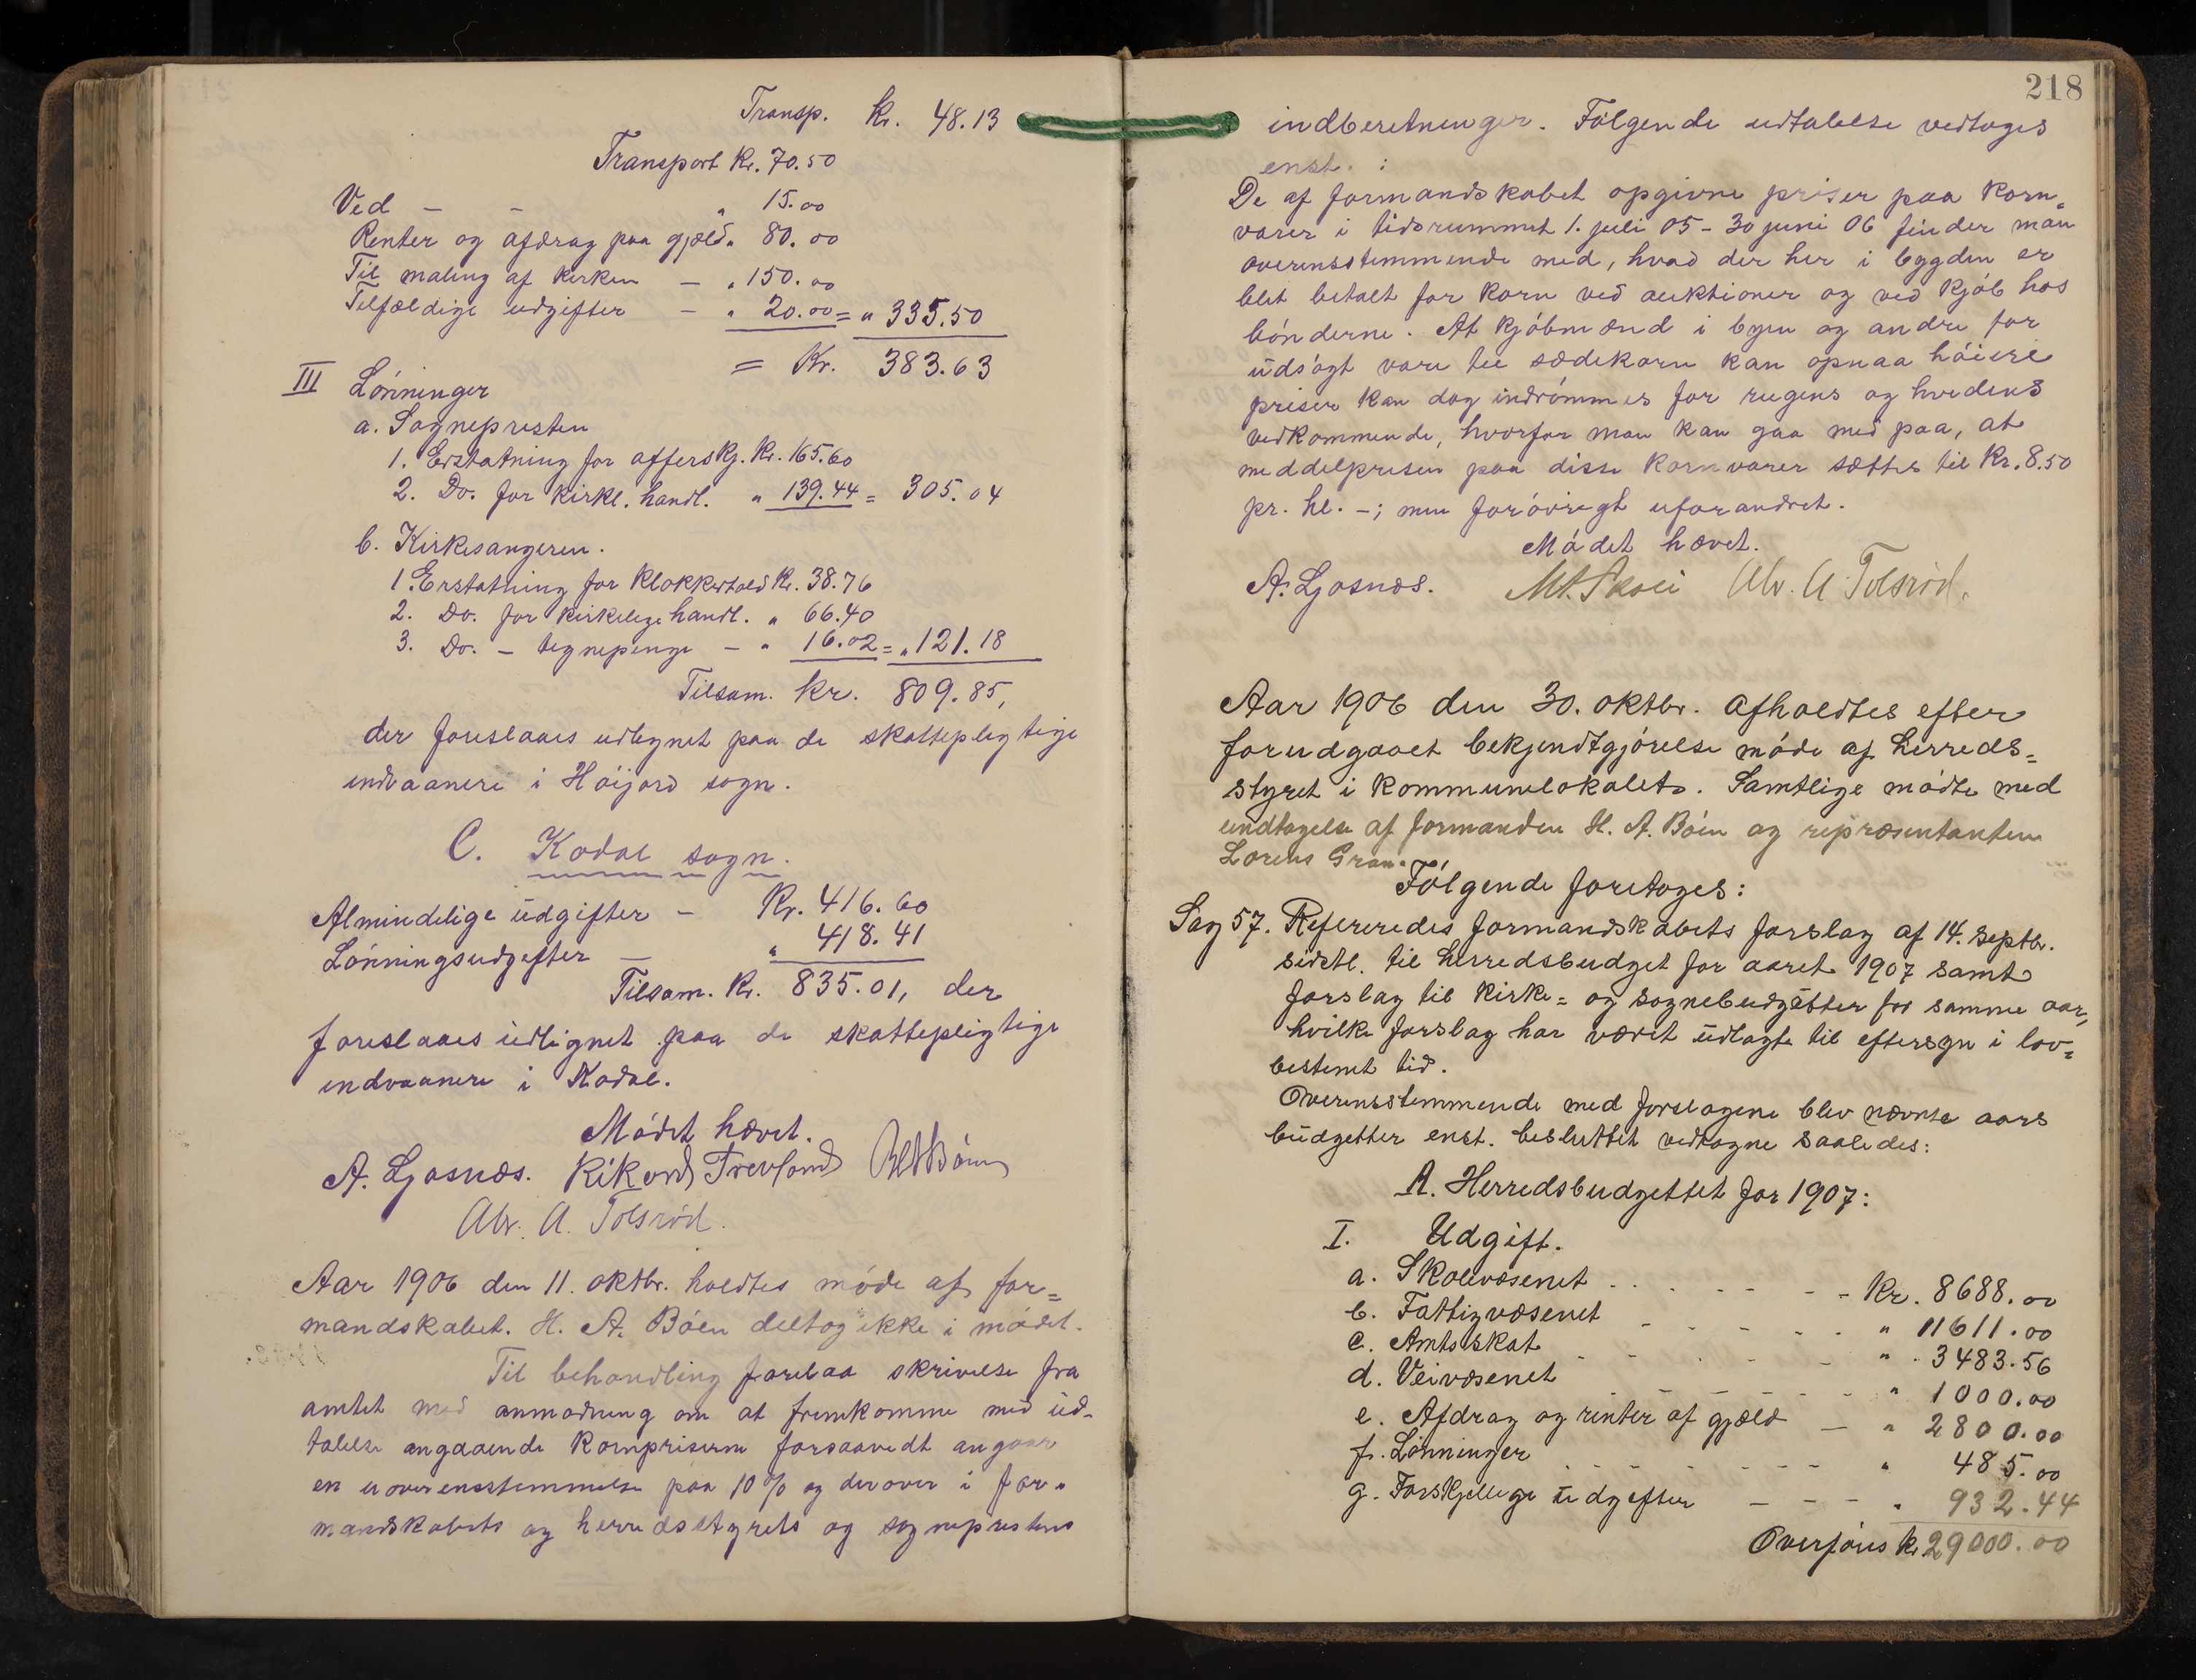 Transp. Kr. 48.13
Transport Kr. 70.50
Ved - - " 15.00
Renter og afdrag paa gjæld " 80.00
Til maling af kirken - " 150.00
Tilfældige udgifter - " 20.00 = " 335.50
= Kr. 383.63
III Lønninger
a. Sognepresten
1. Erstatning for offersky. Kr. 165.60
2. Do. for kirkl. handl. " 139.44 = 305.04
b. Kirkesangeren.
1. Erstatning for Klokkertold Kr. 38.76
2. Do. for kirkelige handl. " 66.40
3. Do. - tegnepenge - " 16.02 = " 121.18
Tilsam. Kr. 809.85,
der foreslaaes udlignet paa de skattepligtige
indvaanere i Høijord sogn.
C. Kodal sogn.
Almindelige udgifter - Kr. 416.60
Lønningsudgifter - " 418.41
Tilsam. Kr. 835.01, der
foreslaaes udlignet paa de skattepligtige
indvaanere i Kodal.
Mødet hævet.
A. Ljosnæs. Rikard Trevland
Alv. A. Tolsrød.
Aar 1906 den 11. oktbr. holdtes møde af for=
mandskabet. H. A. Bøen deltog ikke i mødet.
Til behandling forelaa skrivelse fra
amtet med anmodning om at fremkomme med ud-
talelse angaaende kornpriserne forsaavidt angaar
en uoverensstemmelse paa 10 % og derover i for-
mandskabets og herredsstyrets og sogneprestens
218
indberetninger. Følgende udtalelse vedtoges
enst. :
De af formandskabet opgivne priser paa korn=
varer i tidsrummet 1. juli 05 - 30 juni 06 finder man
overensstemmende med, hvad der her i bygden er
blet betalt for korn ved auktioner og ved kjøb hos
bønderne. At kjøbmænd i byen og andre for
udsøgt vare til sædekorn kan opnaa høiere
priser kan dog indrømmes for rugens og hvedens
vedkommende, hvorfor man kan gaa med paa, at
meddelprisen paa disse kornvarer sættes til Kr. 8.50
pr. hl. -; men forøvrigt uforandret.
Mødet hævet.
A. Ljosnæs. M. Skoli Alv. A Tolsrød.
Aar 1906 den 30. oktbr. afholdtes efter
forudgaaet bekjendtgjørelse møde af herreds=
styret i kommunelokalet. Samtlige mødte med
undtagelse af formanden H. A. Bøen og repræsentanten
Lorens Gran.
Følgende foretoges:
Sag 57. Refereredes formandskabets forslag af 14. septbr.
sidstl. til herredsbudget for aaret 1907 samt
forslag til kirke= og sognebudgetter for samme aar,
hvilke forslag har været udlagte til eftersyn i lov=
bestemt tid.
Overensstemmende med forslagene blev nævnte aars
budgetter enst. besluttet vedtagne saaledes:
A. Herredsbudgettet for 1907:
I. Udgift.
a. Skolevæsenet . . - - - - Kr. 8688.00
b. Fattigvæsenet - - - - - " 11611.00
c. Amtsskat - - - - - " 3483.56
d. Veivæsenet - - - - - " 1000.00
e. Afdrag og renter af gjæld - " 2800.00
f. Lønninger - - - - - - " 485.00
g. Forskjellige udgifter - - - " 932.44
Overføres kr. 29000.00